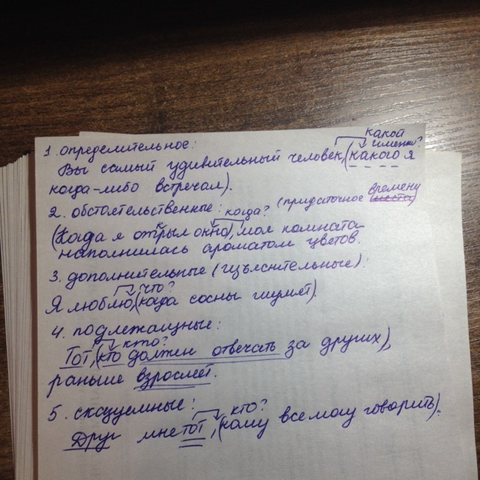 1. определительное:
какой
именно?
Вы самый удивительный человек, (какого я
когда-либо встречал).
2. обстоятельственные: (придаточное времени места)
когда?
(Когда я открыл окно), моя комната
наполнилась ароматом цветов.
3. дополнительные (изъяснительные):
что?
Я люблю, (когда сосны шумят).
4. подлежащные:
кто?
Тот, (кто должен отвечать за других),
раньше взрослеет.
5. сказуемные:
кто?
Друг мне тот, (кому всё могу говорить).